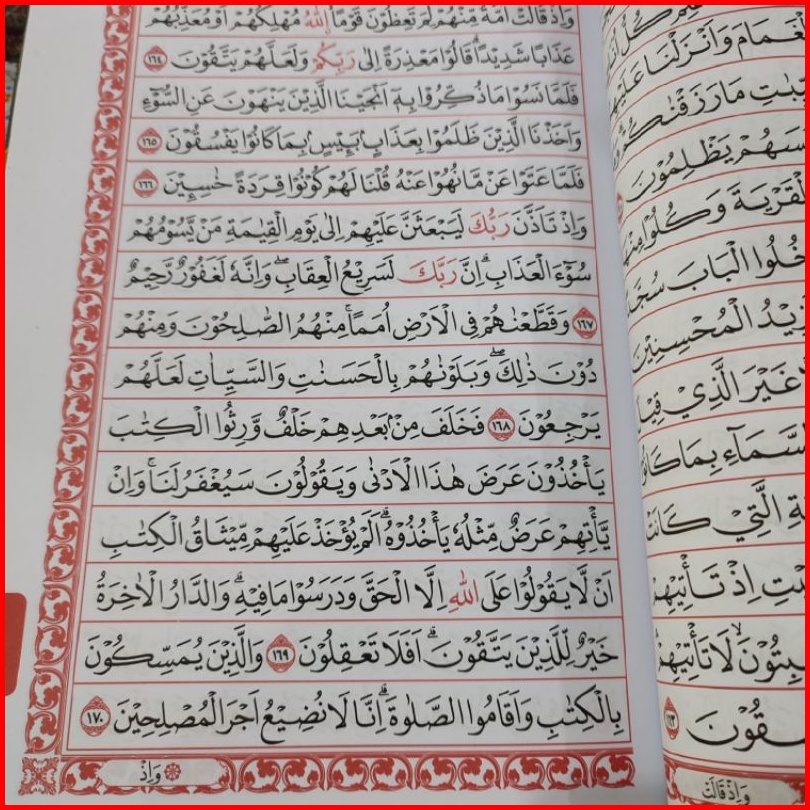 وَاِذْ قَالَتْ اُمَّةٌ مِّنْهُمْ لِمَ تَعِظُوْنَ قَوْمًاۙ اللّٰهُ مُهْلِكُهُمْ اَوْ مُعَذِّبُهُمْ
عَذَابًا شَدِيْدًاؕ قَالُوْا مَعْذِرَةً اِلٰى رَبِّكُمْ وَلَعَلَّهُمْ يَتَّقُوْنَ ١٦٤
فَلَمَّا نَسُوْا مَا ذُكِّرُوْا بِهٖٓ اَنْجَيْنَا الَّذِيْنَ يَنْهَوْنَ عَنِ السُّوْٓءِ
وَاَخَذْنَا الَّذِيْنَ ظَلَمُوْا بِعَذَابٍۭ بَـِٔيْسٍۭ بِمَا كَانُوْا يَفْسُقُوْنَ ١٦٥
فَلَمَّا عَتَوْا عَنْ مَّا نُهُوْا عَنْهُ قُلْنَا لَهُمْ كُوْنُوْا قِرَدَةً خٰسِـِٕيْنَ ١٦٦
وَاِذْ تَاَذَّنَ رَبُّكَ لَيَبْعَثَنَّ عَلَيْهِمْ اِلٰى يَوْمِ الْقِيٰمَةِ مَنْ يَّسُوْمُهُمْ
سُوْٓءَ الْعَذَابِؕ اِنَّ رَبَّكَ لَسَرِيْعُ الْعِقَابِۖ وَاِنَّهٗ لَغَفُوْرٌ رَّحِيْمٌ
١٦٧ وَقَطَّعْنٰهُمْ فِى الْاَرْضِ اُمَمًاۚ مِنْهُمُ الصّٰلِحُوْنَ وَمِنْهُمْ
دُوْنَ ذٰلِكَۖ وَبَلَوْنٰهُمْ بِالْحَسَنٰتِ وَالسَّيِّاٰتِ لَعَلَّهُمْ
يَرْجِعُوْنَ ١٦٨ فَخَلَفَ مِنْۢ بَعْدِهِمْ خَلْفٌ وَّرِثُوا الْكِتٰبَ
يَاْخُذُوْنَ عَرَضَ هٰذَا الْاَدْنٰى وَيَقُوْلُوْنَ سَيُغْفَرُ لَنَاۚ وَاِنْ
يَّاْتِهِمْ عَرَضٌ مِّثْلُهٗ يَاْخُذُوْهُؕ اَلَمْ يُؤْخَذْ عَلَيْهِمْ مِّيْثَاقُ الْكِتٰبِ
اَنْ لَّا يَقُوْلُوْا عَلَى اللّٰهِ اِلَّا الْحَقَّ وَدَرَسُوْا مَا فِيْهِؕ وَالدَّارُ الْاٰخِرَةُ
خَيْرٌ لِّلَّذِيْنَ يَتَّقُوْنَؕ اَفَلَا تَعْقِلُوْنَ ١٦٩ وَالَّذِيْنَ يُمَسِّكُوْنَ
بِالْكِتٰبِ وَاَقَامُوا الصَّلٰوةَؕ اِنَّا لَا نُضِيْعُ اَجْرَ الْمُصْلِحِيْنَ ١٧٠
وَاِذْ
الْغَمَامَ وَاَنْزَلْنَا عَلَيْهِمُ
مَا رَزَقْنٰكُمْ
يَظْلِمُوْنَ
الْقَرْيَةَ وَكُلُوْا مِنْهَا
الْبَابَ سُجَّدًا
الْمُحْسِنِيْنَ
غَيْرَ الَّذِيْ قِيْلَ
السَّمَآءِ بِمَا كَانُوْا
الَّتِيْ كَانَتْ
اِذْ تَاْتِيْهِمْ
لَا تَاْتِيْهِمْ
وَاِذْ قَالَتْ